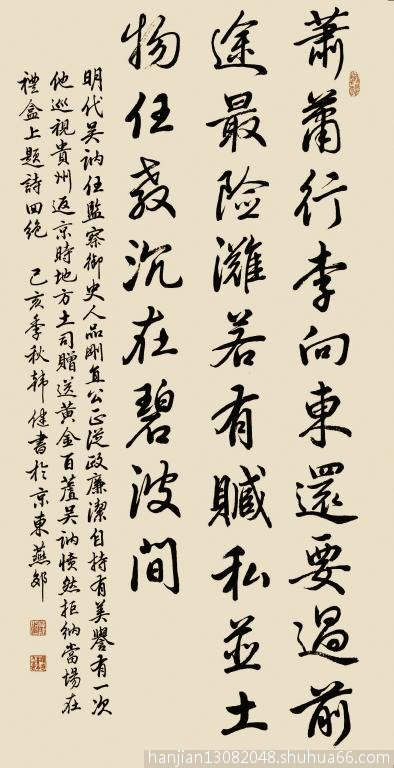 蕭蕭行李向東還要過前
途最险灘若有贓私並土
物任教沉在碧波間
明代吴訥任監察御史人品剛直公正從政廉潔自持有美譽有一次
他巡視貴州返京時地方土司贈送黄金百蘆吴訥愤然拒纳當場在
禮盒上題詩回絶 己亥季秋韩健書於京東燕郊
hanjian13082048.shuhua66.com